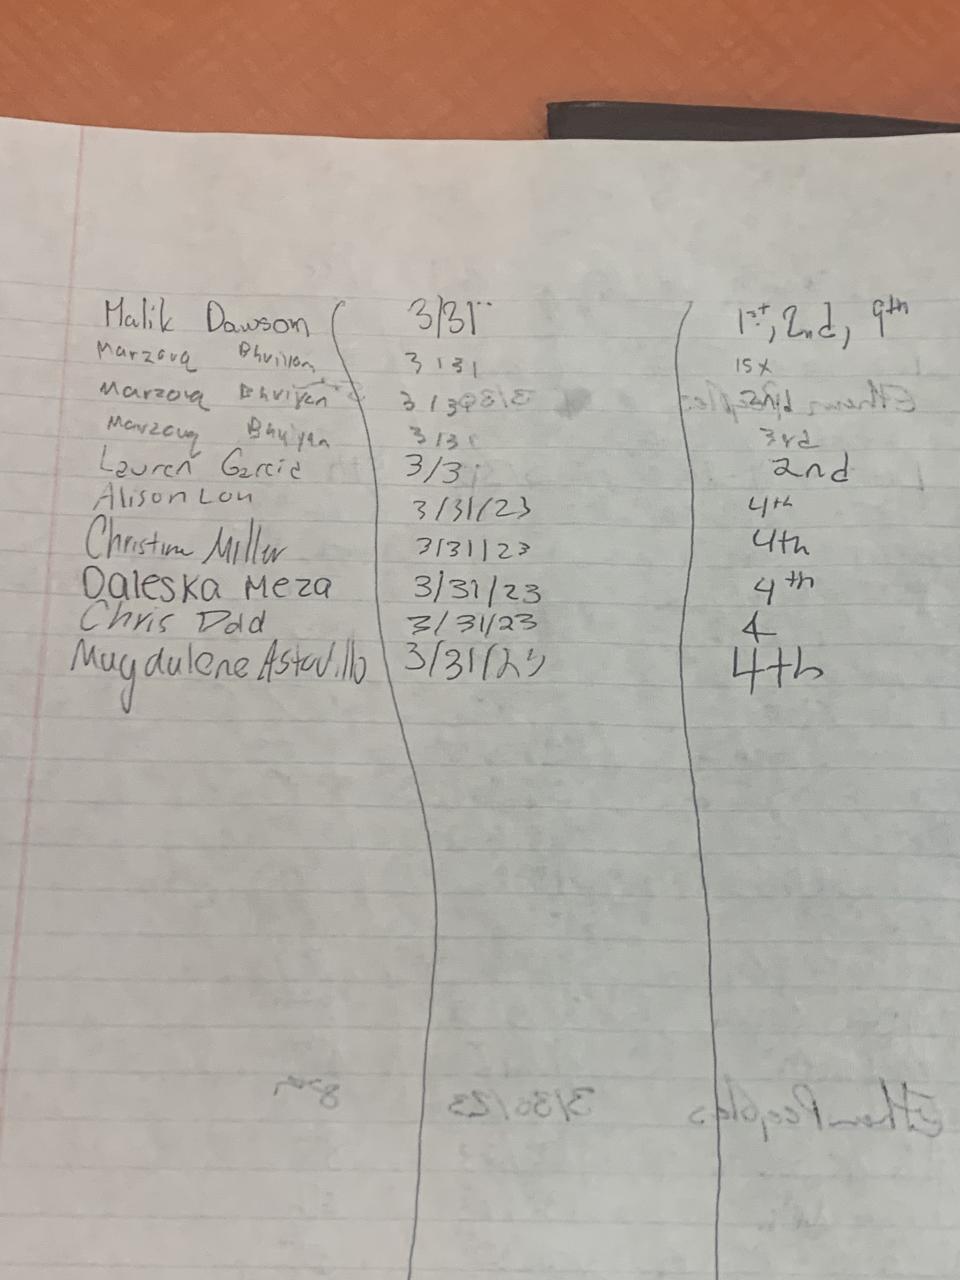 Malik Dawson 3/31 1st, 2nd, 9th
Marzouq Bhuiyan 3/31 1st
Marzouq Bhuiyan 3/3 2nd
Marzouq Bhuiyan 3/31 3rd
Lauren Garcia 3/3 2nd
Alison Lou 3/31/23 4th
Christine Miller 3/31/23 4th
Daleska Meza 3/31/23 4th
Chris Ddd 3/31/23 4
Mugdulene Astudillo 3/31/23 4th